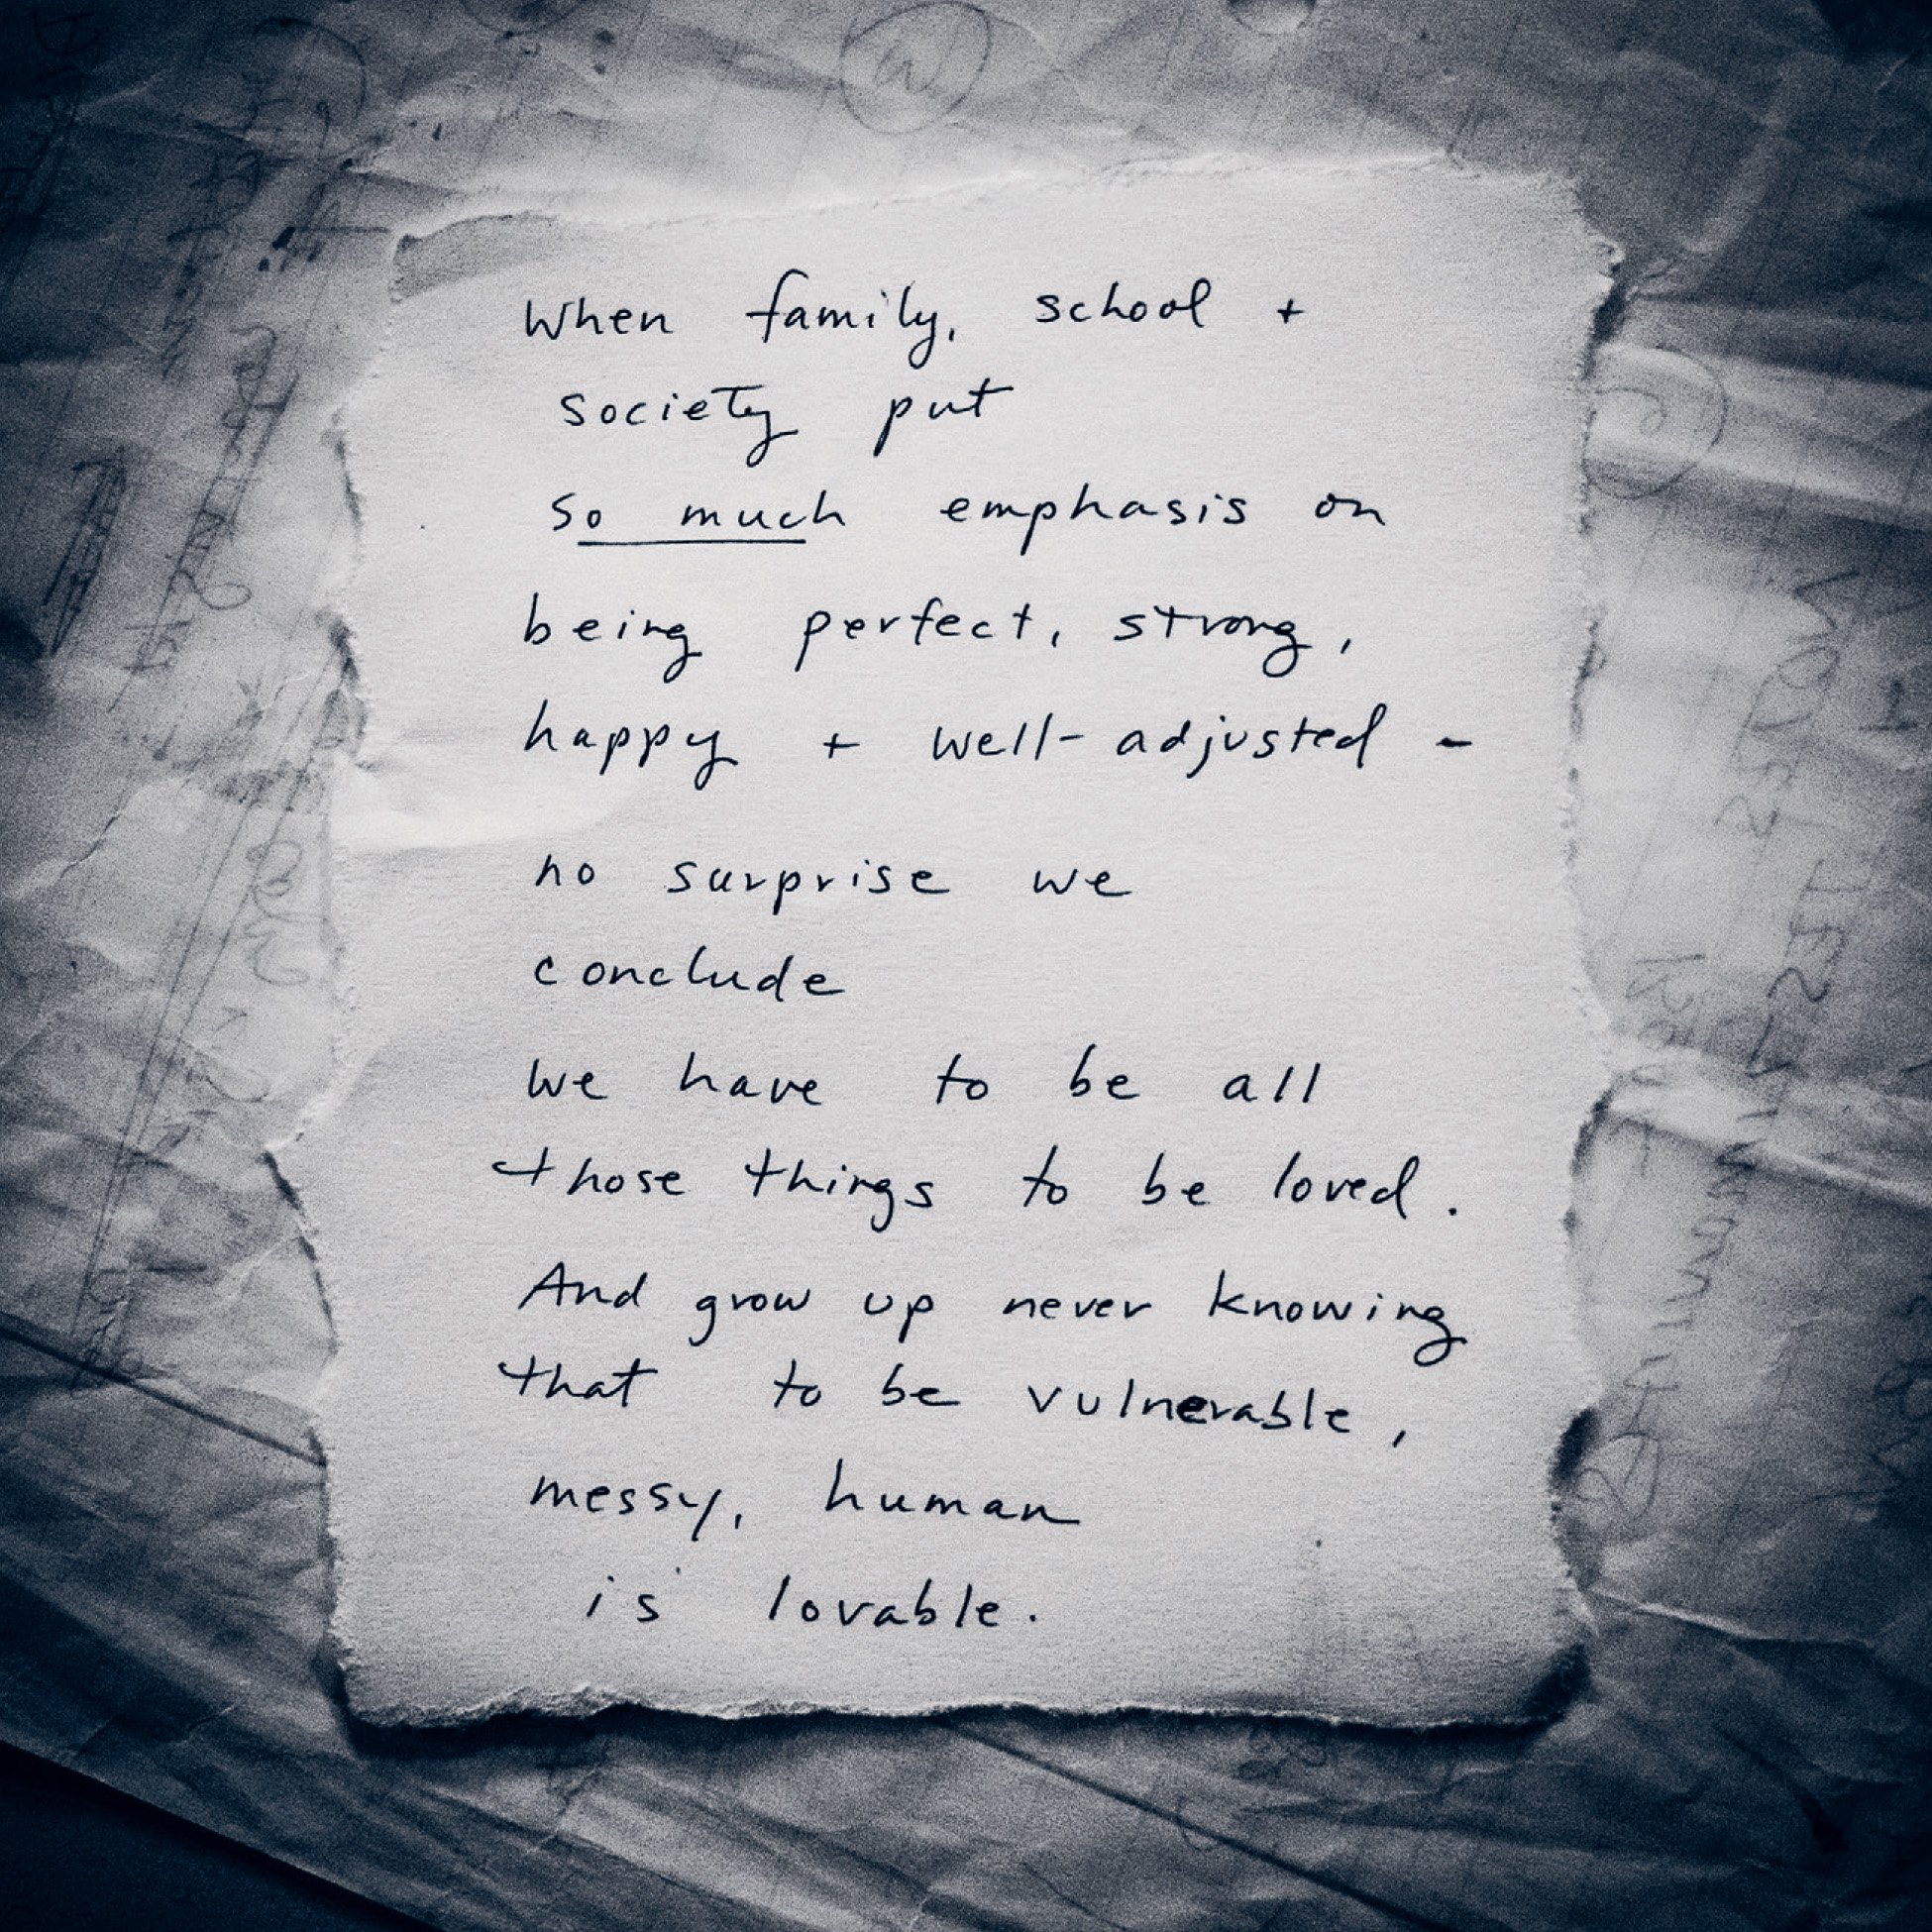 When family, school +
society put
so much emphasis on
being perfect, strong,
happy + well-adjusted -
no surprise we
conclude
we have to be all
those things to be loved.
And grow up never knowing
that to be vulnerable,
messy, human
is lovable.